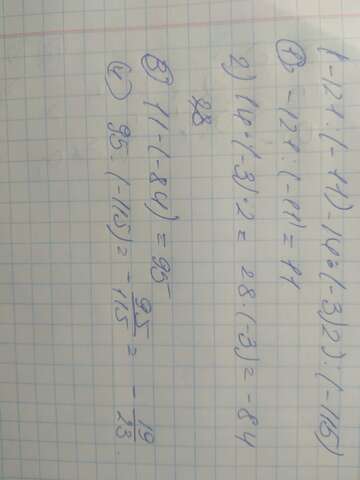 (-121:(-11)-14·(-3)2):(-115)
1) -121:(-11)=11
2) 14·(-3)·2= 28·(-3)=-84
28
3) 11-(-84)=95
4) 95:(-115)= -95/115 = -19/23.